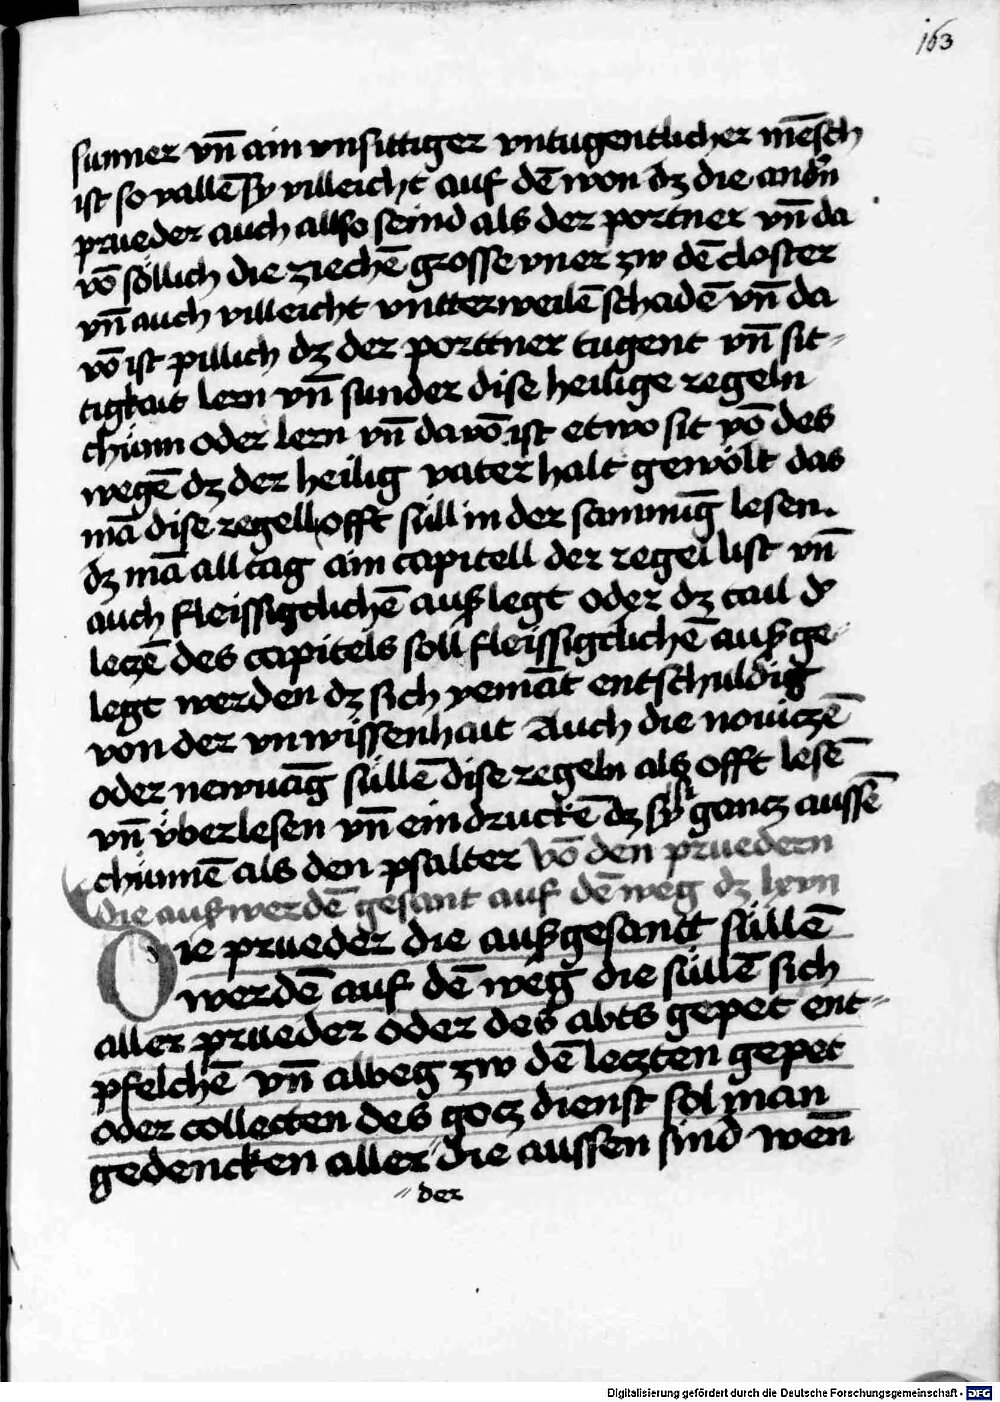 163
sunner vn̄ ain vnsittiger vntugentlicher mēsch
ist so vallē sy villeicht auf dē won dʒ die andn̄
prueder auch allso seind als der portner vn̄ da
vō söllich die ziechē grosse vner zw dē closter
vn̄ auch villeicht vntterweilē schadē vn̄ da
vō ist pillich dʒ der porttner tugent vn̄ sit-
tigkait lern vn̄ sunder dise heilige regeln
chünn oder lern vn̄ da vō ist etwo sit vō des
wegē dʒ der heilig vater halt gewölt das
mā dise regell offt süll in der sammūg lesen.
dʒ mā all tag ain capitell der regel list vn̄
auch fleissigclichē außlegt oder dʒ tail d᾽
leczē des capitels soll fleissigclichē auß ge-
legt werden dʒ sich yemāt entschuldig
von der vnwissenhait Auch die noviczē
oder newuāg süllē dise regeln als offt lesē
vn̄ v̈berlesen vn̄ eindruckē dʒ sy gancz aussē
chünnē als den psalter vō den pruedern
die auß werdē gesant auf dē weg dʒ lxvn
Die prueder die außgesantt süllē
werdē auf dē weg die süllē sich
aller prueder oder des abts gepet ent-
pfelchē vn̄ albeg zw dē leczten gepet
oder collecten des gocz dienst sol man
gedencken aller die aussen sind wen̄
der
Digitalisierung gefördert durch die Deutsche Forschungsgemeinschaft - DFG